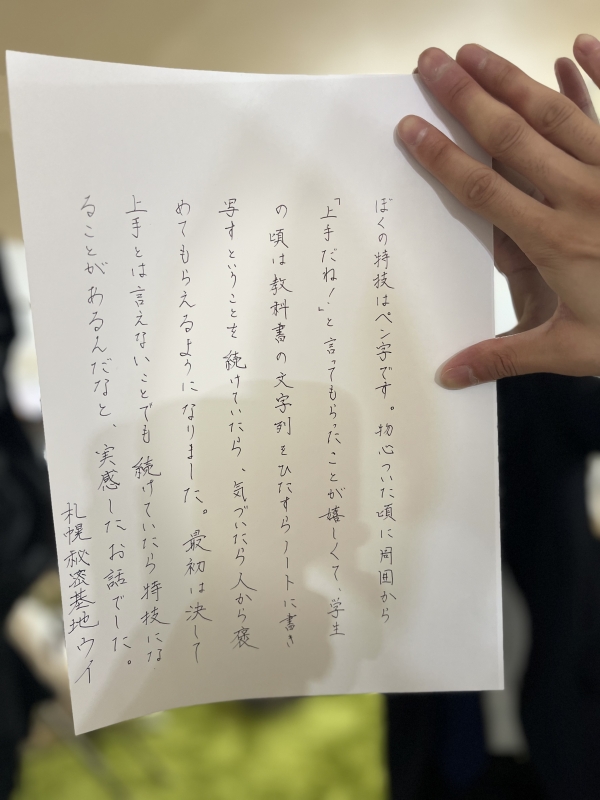 ぼくの特技はペン字です。物心ついた頃に周囲から
「上手だね！」と言ってもらったことが嬉しくて、学生
の頃は教科書の文字列をひたすらノートに書き
写すということを続けていたら、気づいたら人から褒
めてもらえるようになりました。最初は決して
上手とは言えないことでも続けていたら特技にな
ることがあるんだなと、実感したお話でした。
札幌秘密基地ウイ